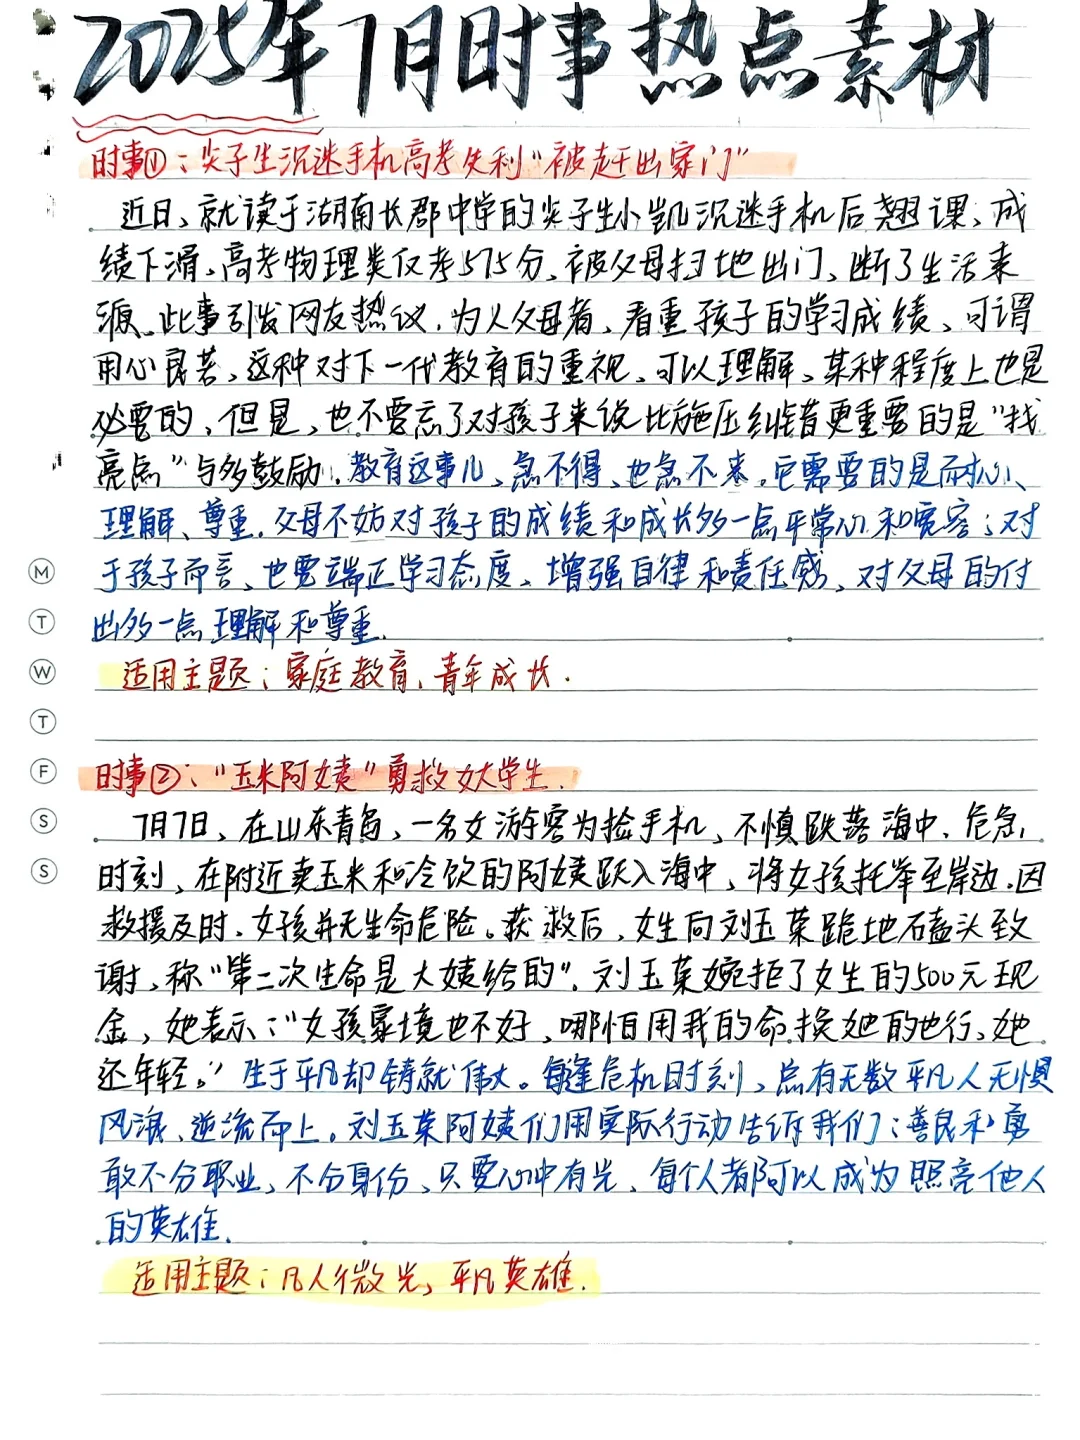 2025年7月时事热点素材
时事①：尖子生沉迷手机高考失利“被赶出家门”
近日，就读于湖南长郡中学的尖子生小凯沉迷手机后翘课，成
绩下滑，高考物理类仅考575分，被父母扫地出门，断了生活来
源，此事引发网友热议，为人父母者，看重孩子的学习成绩，可谓
用心良苦，这种对下一代教育的重视，可以理解，某种程度上也是
必要的，但是，也不要忘了对孩子来说比施压纠错更重要的是“找
亮点”与多鼓励，教育这事儿，急不得，也急不来，它需要的是耐心、
理解、尊重，父母不妨对孩子的成绩和成长多一点平常心和宽容；对
于孩子而言，也要端正学习态度，增强自律和责任感，对父母的付
出多一点理解和尊重．
适用主题：家庭教育、青年成长．
M
T
W
T
F
S
S
时事②：“玉米阿姨”勇救女大学生．
7月7日，在山东青岛，一名女游客为捡手机，不慎跌落海中，危急
时刻，在附近卖玉米和冷饮的阿姨跃入海中，将女孩托举至岸边．因
救援及时，女孩并无生命危险。获救后，女生向刘玉荣跪地磕头致
谢，称“第二次生命是大姨给的”．刘玉荣婉拒了女生的500元现
金，她表示：“女孩家境也不好，哪怕用我的命换她的也行，她
还年轻。”生于平凡却铸就伟大。每逢危机时刻，总有无数平凡人无惧
风浪、逆流而上。刘玉荣阿姨们用实际行动告诉我们：善良和勇
敢不分职业，不分身份，只要心中有光，每个人都可以成为照亮他人
的英雄．
适用主题：凡人微光，平凡英雄．